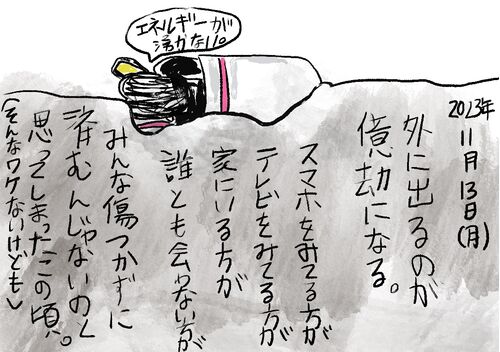 エネルギーが
湧かない。
2023年
11月13日(月)
外に出るのが
億劫になる。
スマホをみてる方が
テレビをみてる方が
家にいる方が
誰とも会わない方が
みんな傷つかずに
済むんじゃないのと
思ってしまったこの頃。
(そんなワケないけども)